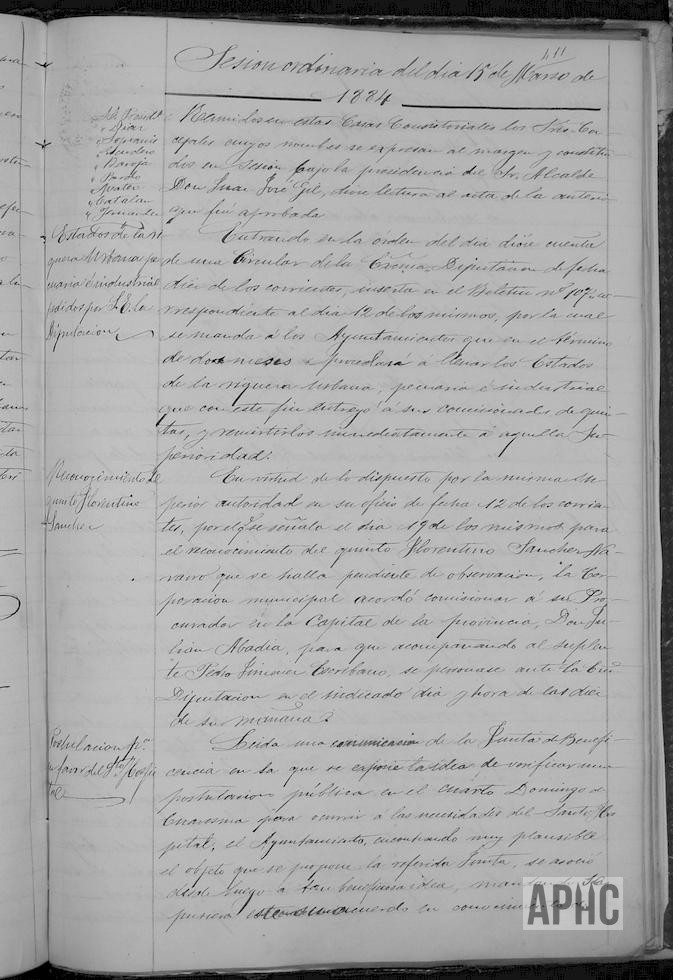 411
Sesion ordinaria del dia 15 de Marzo de
1884
Sr. Presidt
" Diaz
" Sopranis
" Escudero
" Baroja
" Pardo
" Mateo
" Catalan
" Fernandez
Reunidos en estas Casas Consistoriales los Sres. Con-
cejales cuyos nombres se expresan al margen y constitui-
dos en Sesion bajo la presidencia del Sr. Alcalde
Don Juan José Gil, dióse lectura al acta de la anterior
que fué aprobada
Estados de la ri
queza Urbana pe
cuaria é industrial
pedidos por S. E. la
Diputacion
Entrando en la órden del dia dióse cuenta
de una Circular de la Excma. Diputacion de fecha
diez de los corrientes, inserta en el Boletin nº 107, co-
rrespondiente al dia 12 de los mismos, por la cual
se manda á los Ayuntamientos que en el término
de dos meses procedan á llenar los Estados
de la riqueza Urbana, pecuaria é industrial
que con este fin entregó á sus comisionados de quin-
tas, y remitirlos inmediatamente á aquella Su-
perioridad.
Reconocimiento del
quinto Florentino
Sanchez
En virtud de lo dispuesto por la misma Su-
perior autoridad en su oficio de fecha 12 de los corrien-
tes, por el q. se señala el dia 19 de los mismos para
el reconocimiento del quinto Florentino Sanchez Na-
varro que se halla pendiente de observacion, la Cor-
poracion municipal acordó comisionar á su Pro-
curador en la Capital de la provincia, Don Ju-
lian Abadia, para que acompañando al suplen-
te Pedro Jimenez Escribano, se personase ante la Excma.
Diputacion en el indicado dia y hora de las diez
de su mañana.
Postulacion pca.
en favor del Sto. Hospi
tal
Leida una comunicacion de la Junta de Benefi-
cencia en la que se expone la idea de verificar una
postulacion pública en el cuarto Domingo de
Cuaresma para ocurrir a las necesidades del Santo Hos-
pital, el Ayuntamiento, encontrando muy plausible
el objeto que se propone la referida Junta, se asoció
desde luego a tan benéfica idea, mandando se
pusiera este su acuerdo en conocimiento de
APHC